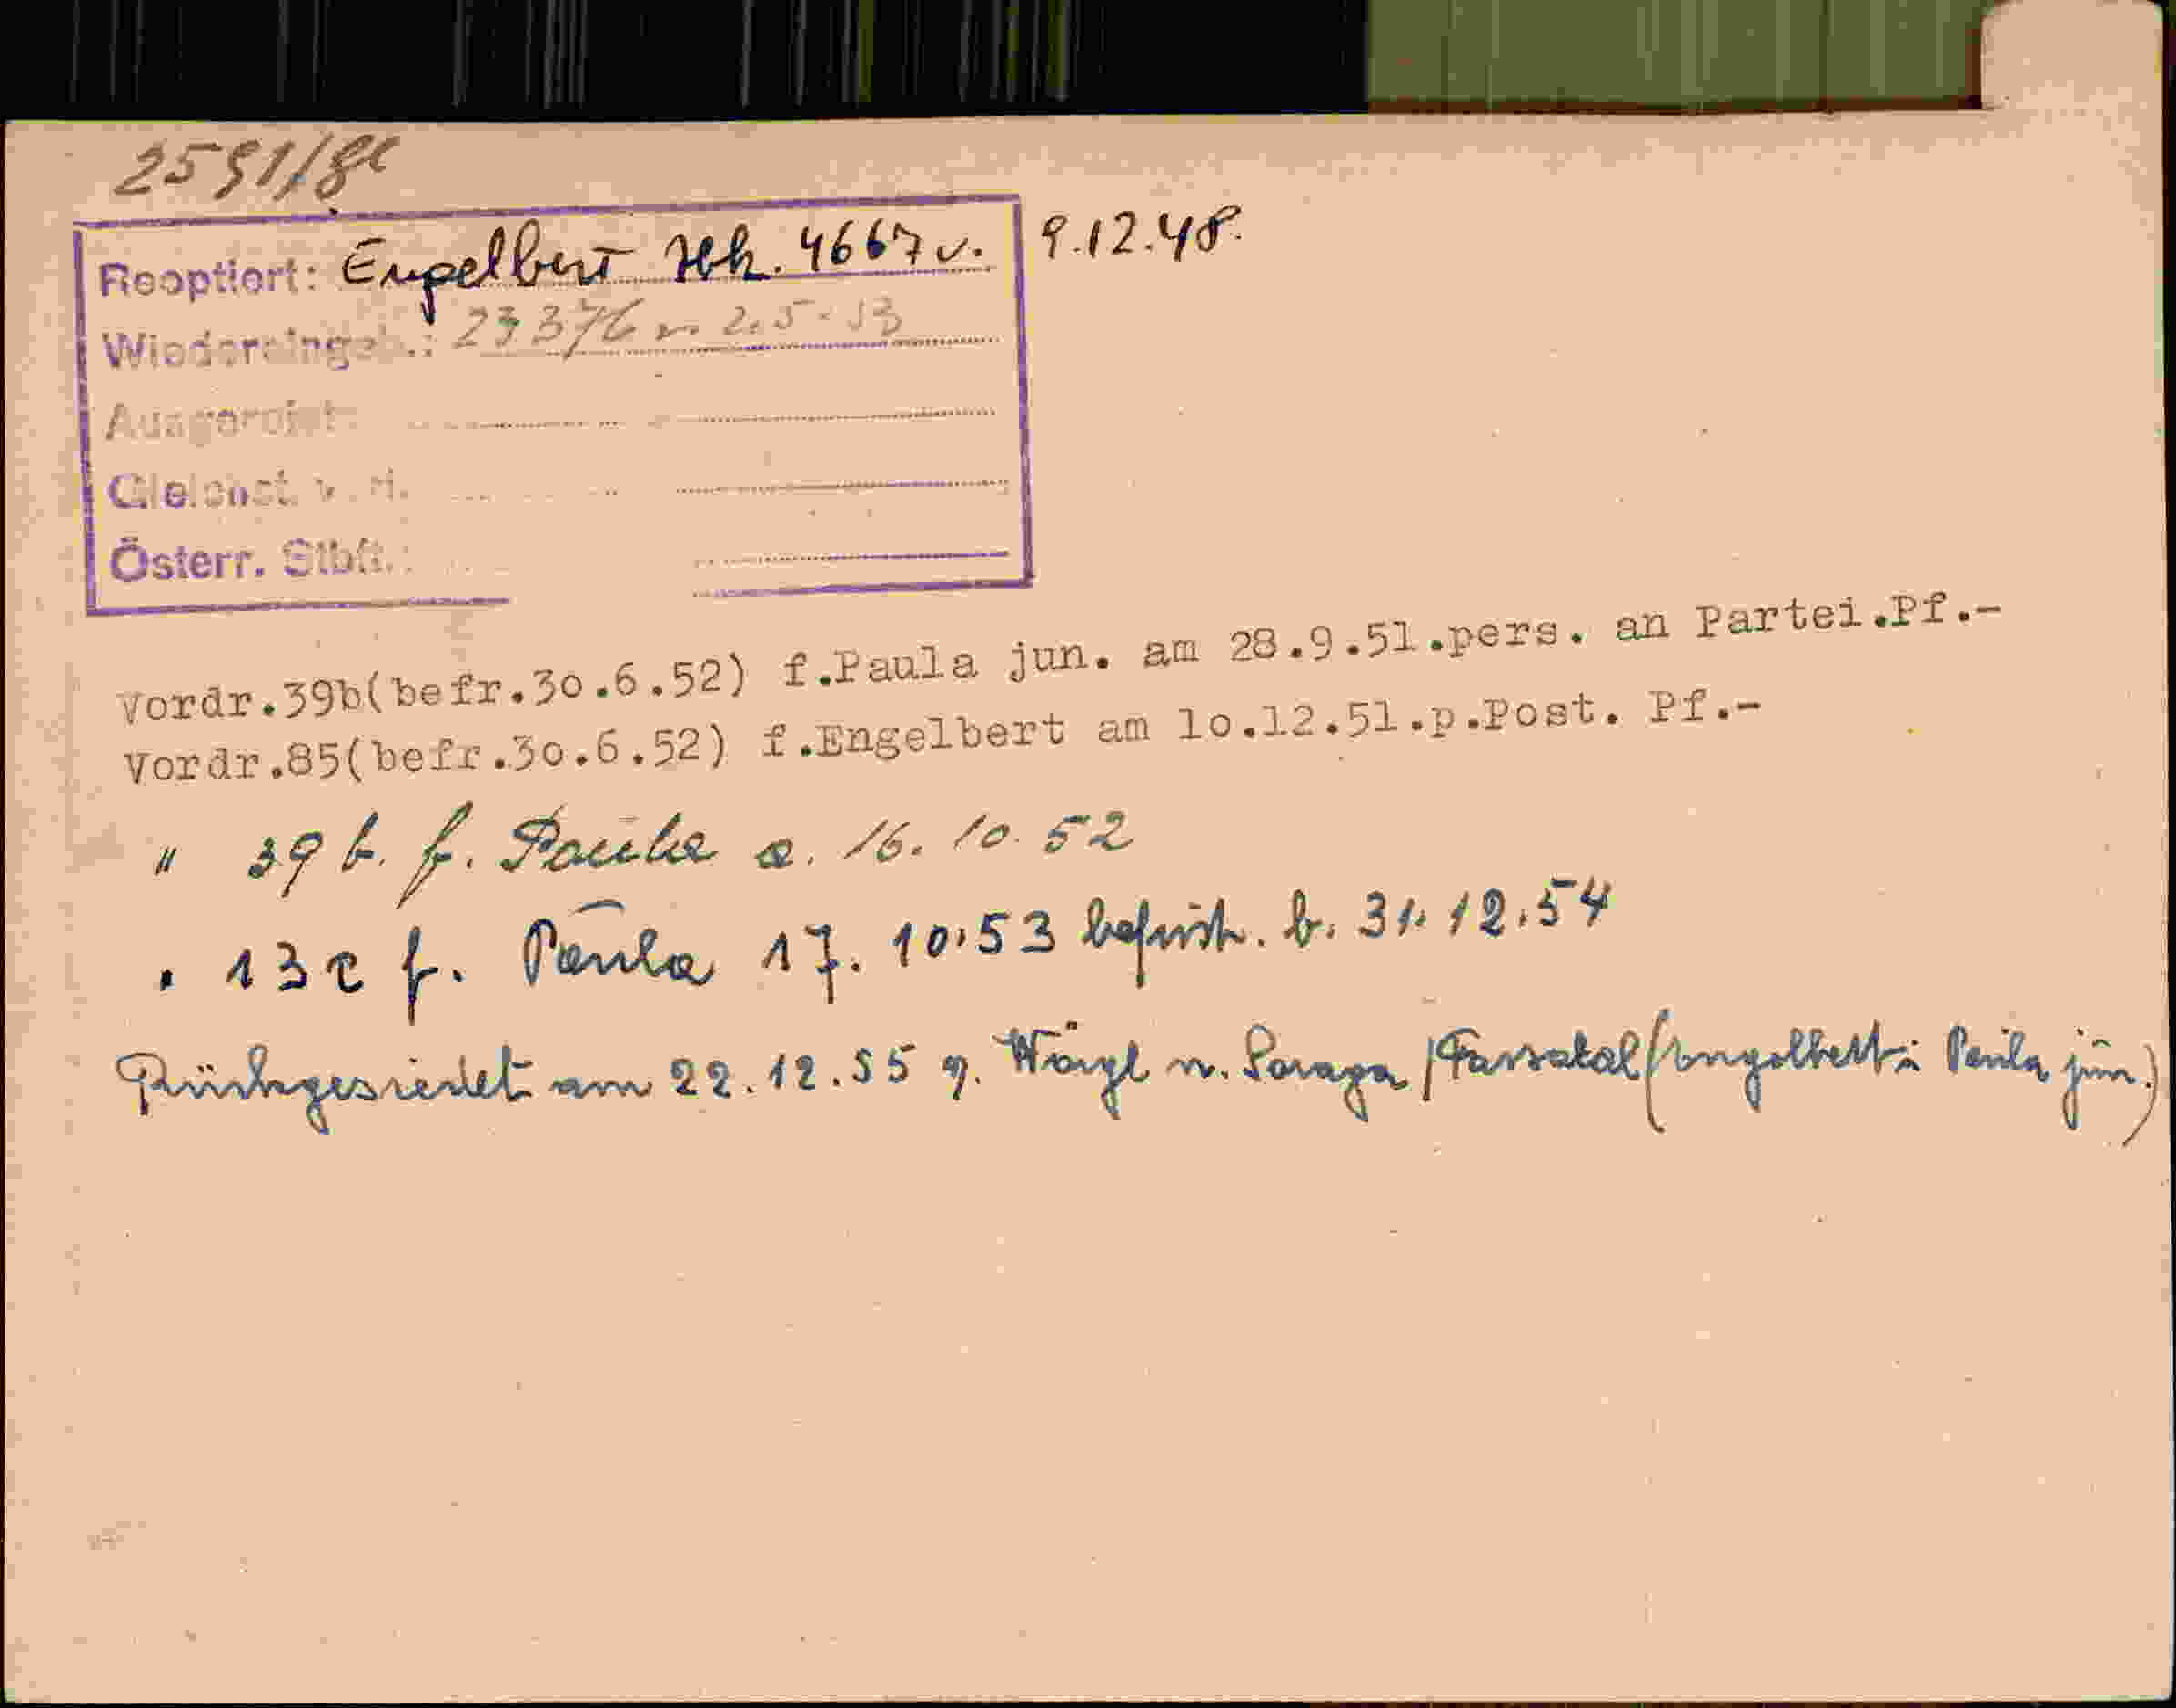 2591/
Reoptiert: Engelbert Hk. 4667 v. 9.12.48.
Wiedereingeb.: 23376 v 2.5.53
Ausgereist:
Gleichst. v. H.
Österr. Stbft.:
Vordr.39b(befr.30.6.52) f.Paula jun. am 28.9.51.pers. an Partei.Pf.-
Vordr.85(befr.30.6.52) f.Engelbert am 10.12.51.p.Post. Pf.-
" 39 b. f. Paula a. 16. 10. 52
" 13 c f. Paula 17. 10.53 befrist. b. 31.12.54
Rückgesiedelt am 22.12.55 v. Wörgl n. Soraga /Fassatal (Engelbert u Paula jun.)